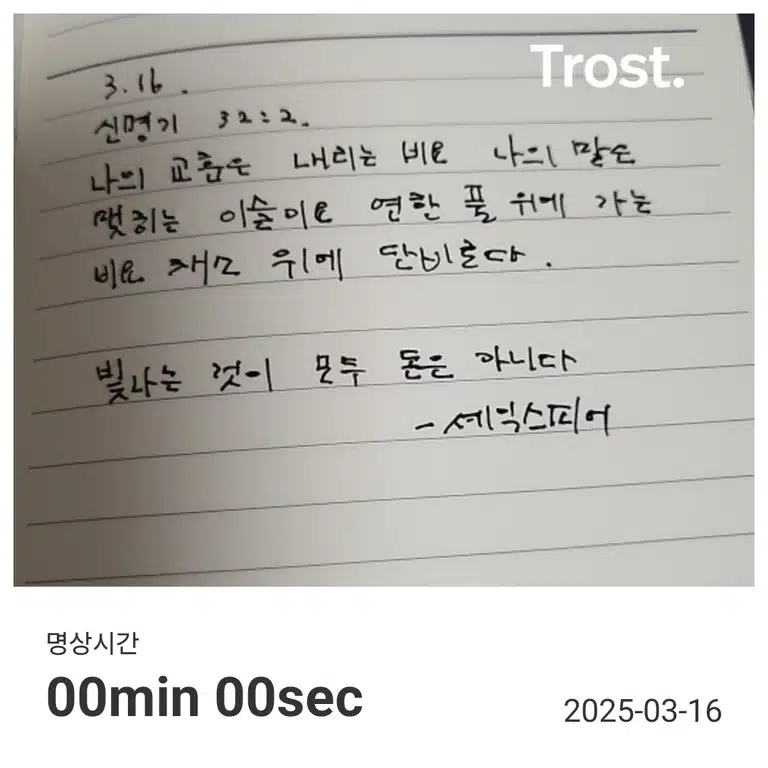 Trost.
3.16.
신명기 32:2.
나의 교훈은 내리는 비요 나의 말은
맺히는 이슬이요 연한 풀 위에 가는
비요 채소 위에 단비로다.
빛나는 것이 모두 돈은 아니다
- 세익스피어
명상시간
00min 00sec
2025-03-16